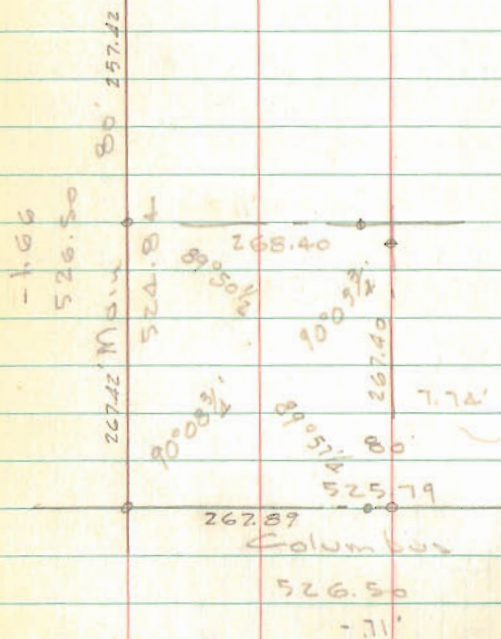 257.42
80'
-1.66
526.50
524.84
Main
267.42'
268.40
89°50½
90°03¾
267.40
90°08¾'
89°57¼
7.74'
80'
525.79
267.89
Columbus
526.50
-.71'